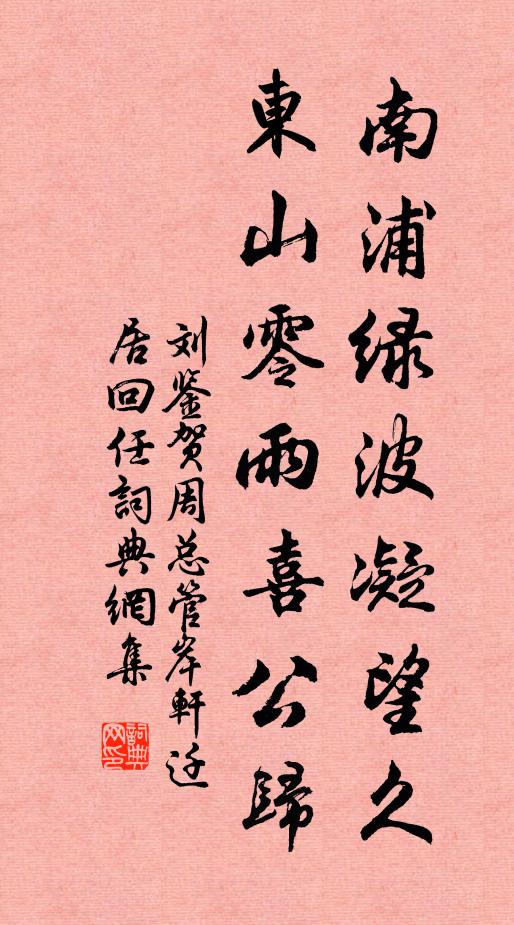 南浦绿波凝望久
東山零雨喜公歸
刘鉴贺周总管岸軒迁
居回任詞典網集
詞典网印